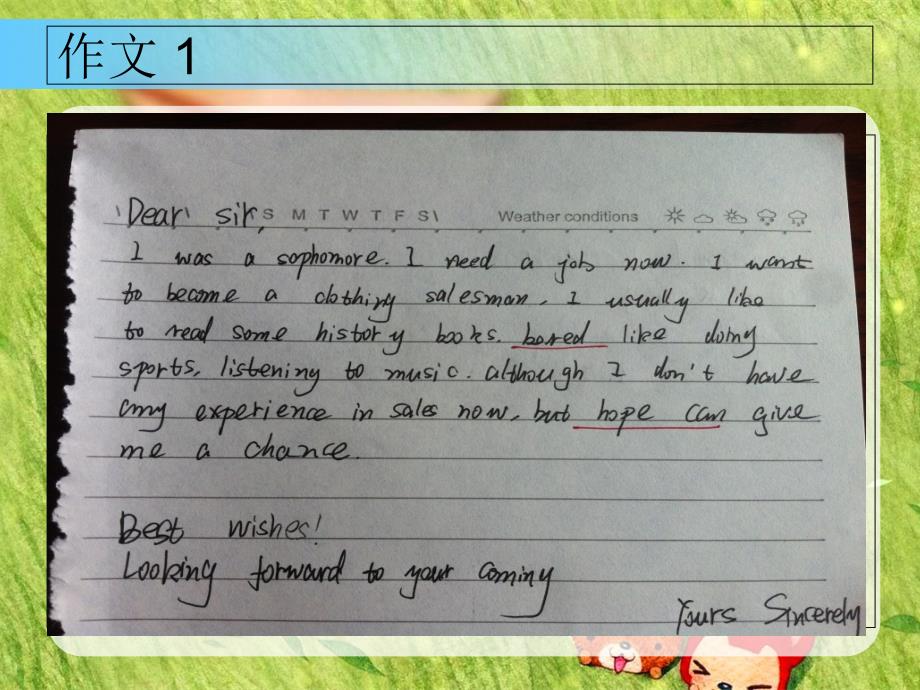 作文 1
Dear sir,
S M T W T F S
Weather conditions
I was a sophomore. I need a job now. I want
to become a clothing salesman. I usually like
to read some history books. bored like doing
sports, listening to music. although I don't have
any experience in sales now, but hope can give
me a chance.
Best wishes!
Looking forward to your coming
Yours Sincerely